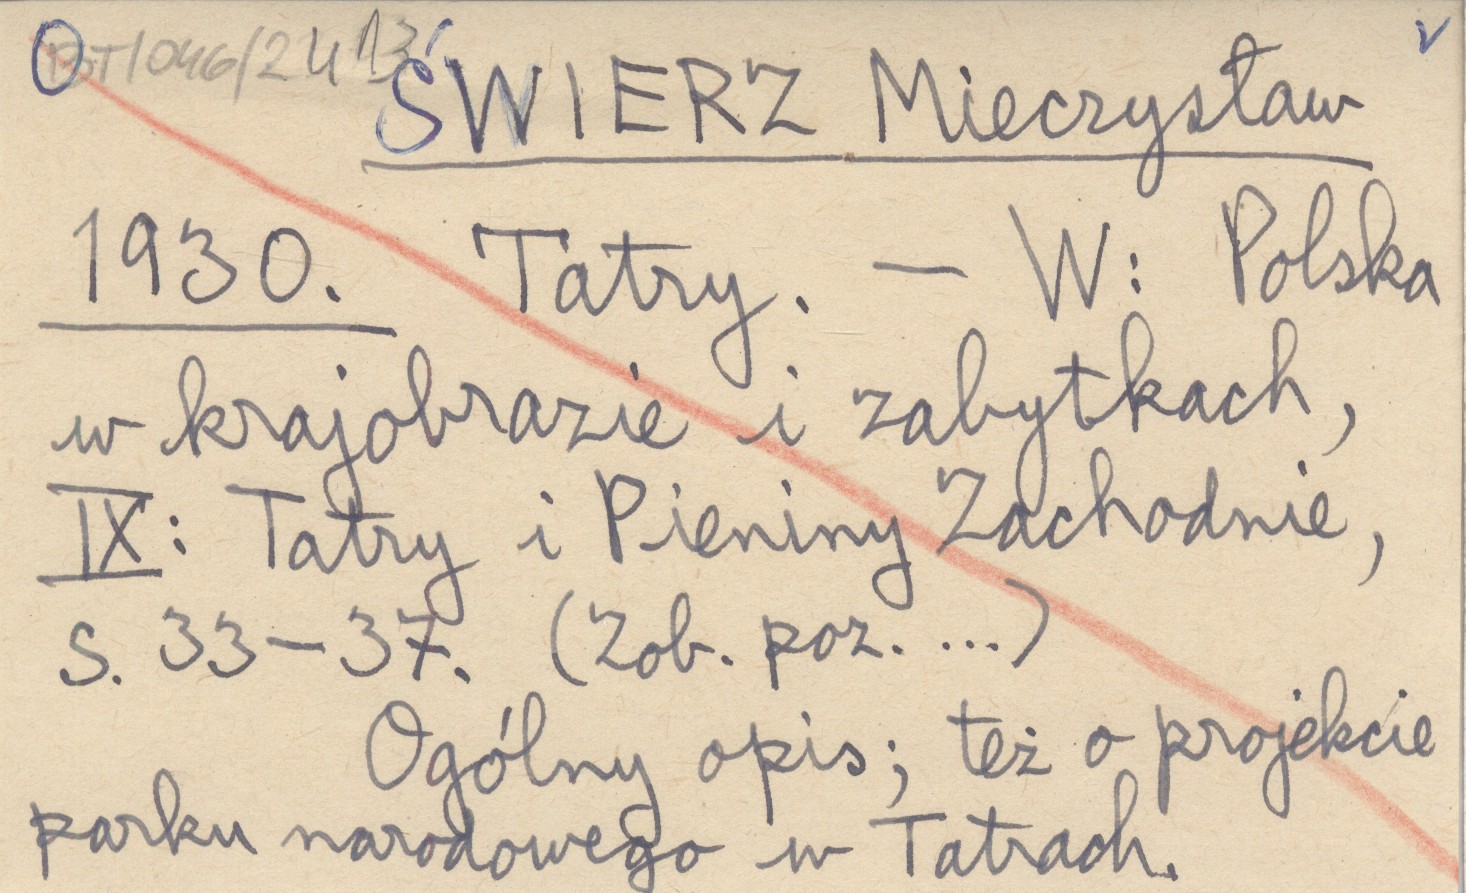 BT/046/24 13
ŚWIERZ Mieczysław
1930. Tatry. — W: Polska
w krajobrazie i zabytkach,
IX: Tatry i Pieniny Zachodnie,
s. 33–37. (Zob. poz. ...)
Ogólny opis; też o projekcie
parku narodowego w Tatrach.